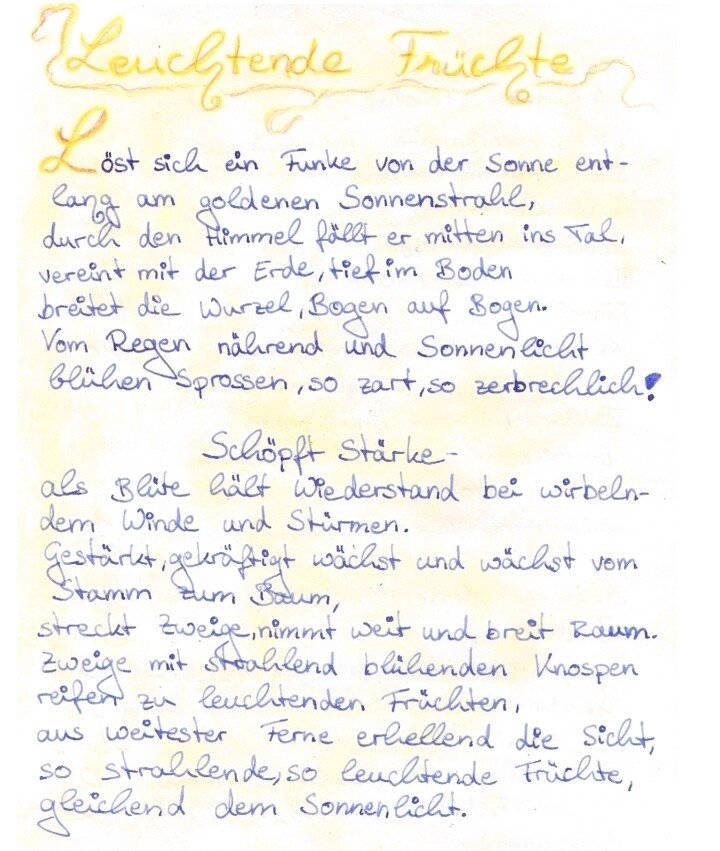 Leuchtende Früchte
Löst sich ein Funke von der Sonne ent-
lang am goldenen Sonnenstrahl,
durch den Himmel fällt er mitten ins Tal,
vereint mit der Erde, tief im Boden
breitet die Wurzel, Bogen auf Bogen.
Vom Regen nährend und Sonnenlicht
blühen Sprossen, so zart, so zerbrechlich!
Schöpft Stärke-
als Blüte hält Wiederstand bei wirbeln-
dem Winde und Stürmen.
Gestärkt, gekräftigt wächst und wächst vom
Stamm zum Baum,
streckt Zweige, nimmt weit und breit Raum.
Zweige mit strahlend blühenden Knospen
reifen zu leuchtenden Früchten,
aus weitester Ferne erhellend die Sicht,
so strahlende, so leuchtende Früchte,
gleichend dem Sonnenlicht.